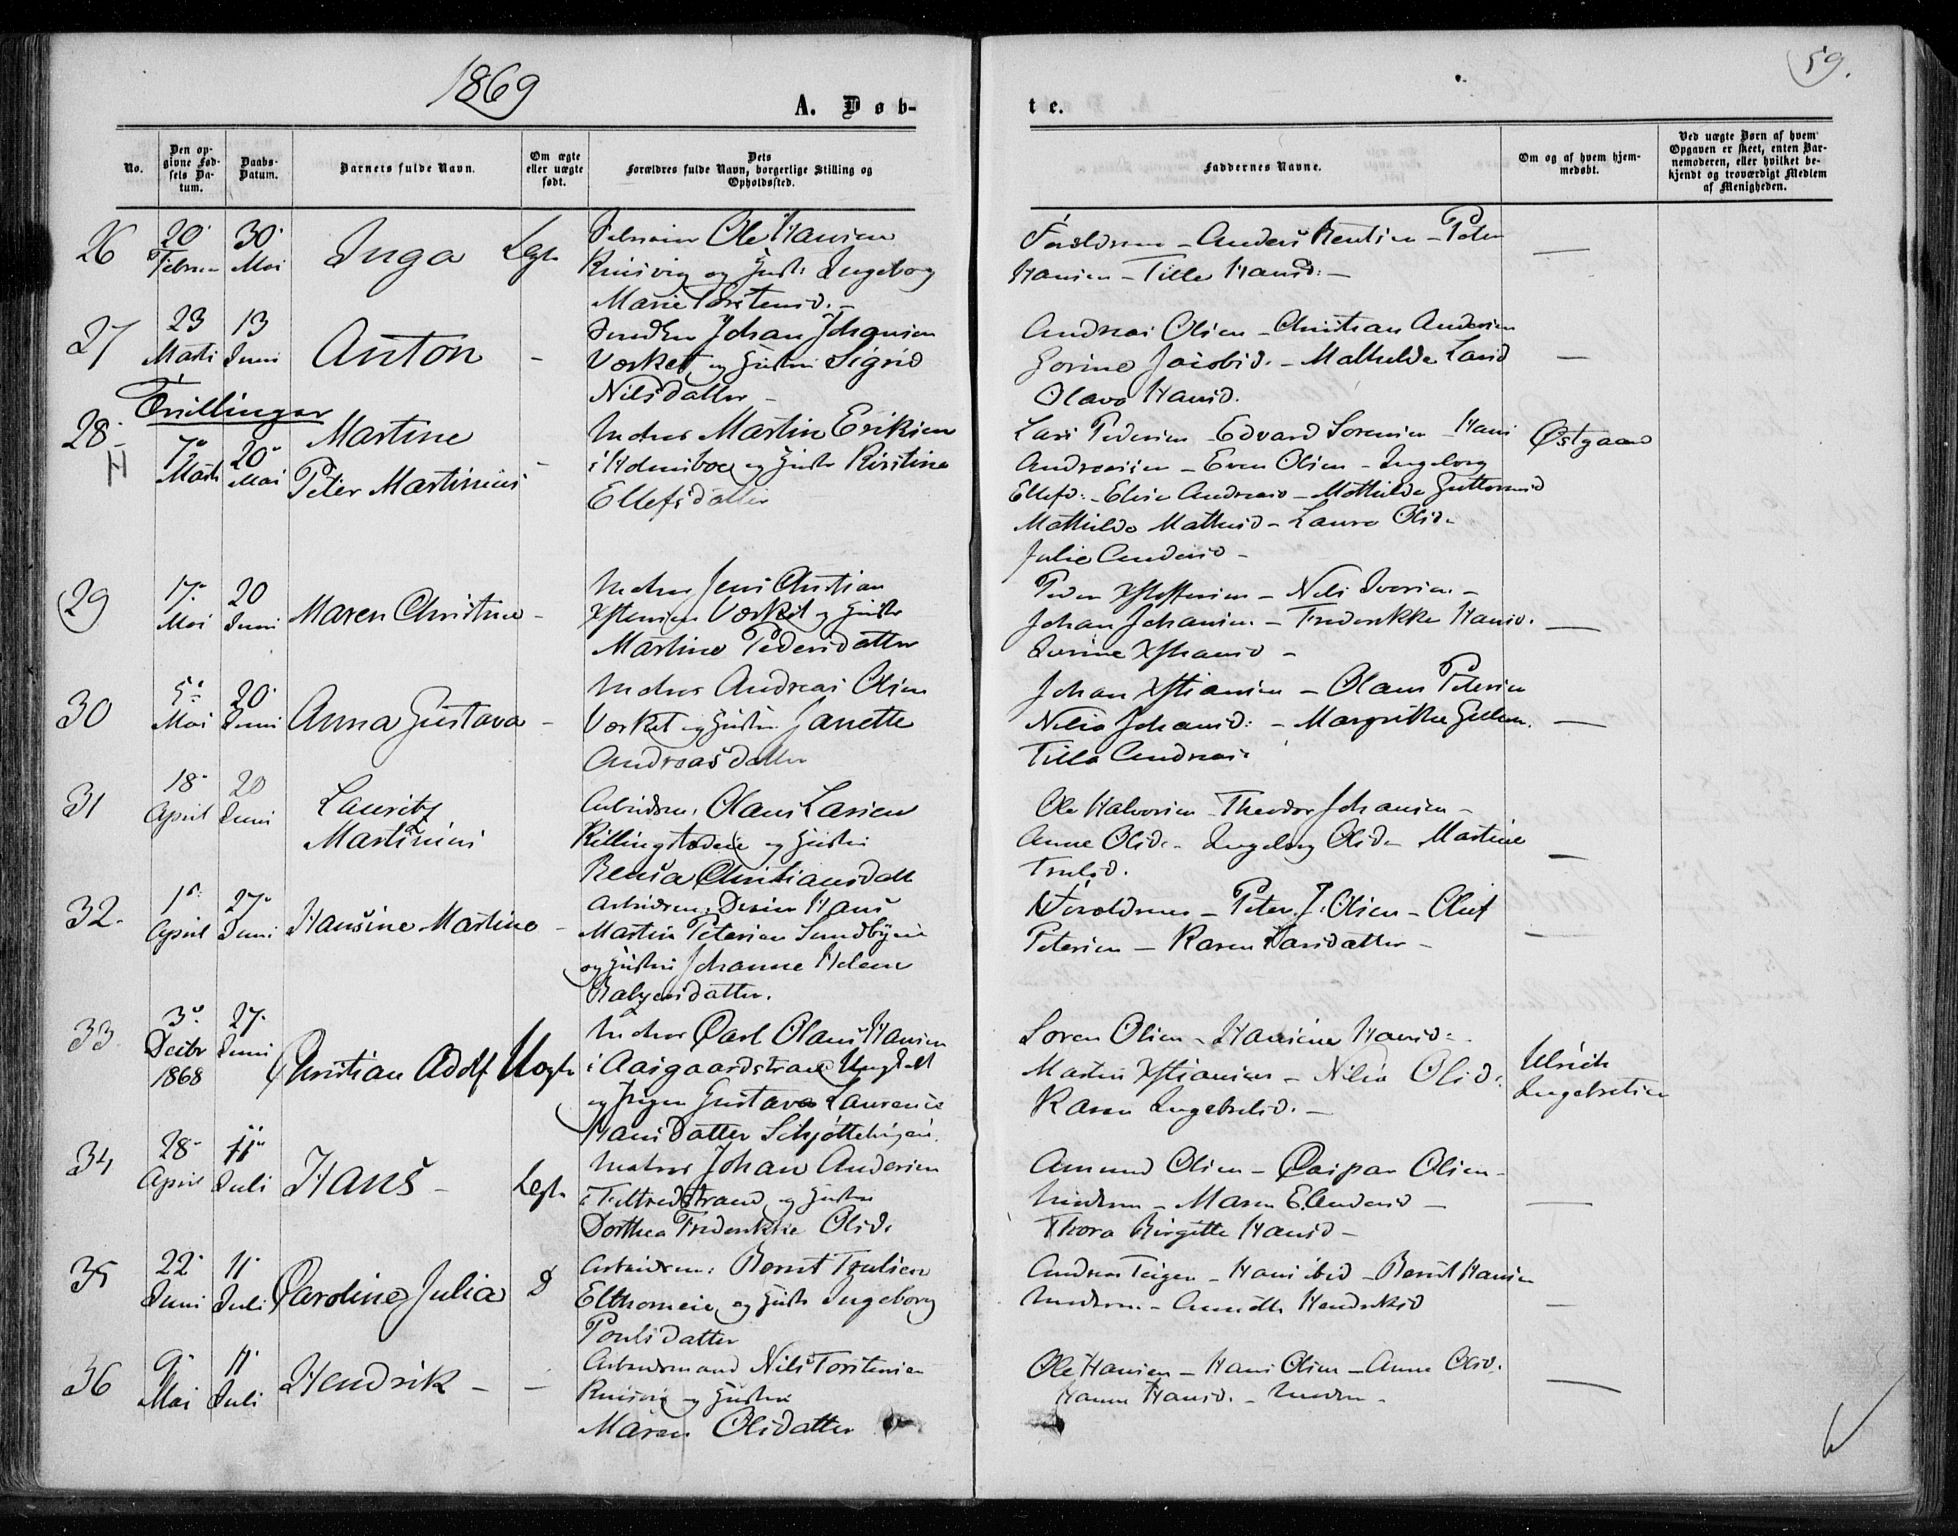 1869
59.
A. Døb-
te.
No.
Den op-
givne Fød-
sels Da-
tum.
Daabs-
Datum.
Barnets fulde Navn.
Om ægte
eller uægte
født.
Dets
Forældres fulde Navn, borgerlige Stilling og
Opholdssted.
Faddernes Navne.
Om og af hvem hjem-
medøbt.
Ved uægte Børn af hvem
Opgaven er skeet, enten Bar-
nemoderen, eller hvilket be-
kjendt og troværdigt Medlem
af Menigheden.
26
20 Februar
30 Mai
Inga
Legt
Ole Hansen
og Hustr: Ingeborg
Marie Torstensd. -
Forældrene - Anders Bentsen - Peter
Hansen - Tilla Hansd: -
27
23 Marts
13 Juni
Anton
-
Johan Johansen
Værket og Hustru Sigrid
Nilsdatter -
Andreas Olsen - Christian Andersen
Gorine Jacobsd. - Mathilde Larsd
Olava Hansd.
Tvillinger
28
7 Marts
20 Mai
Martine
Peter Martinius
Matros Martin Eriksen
i Holmsboe og Hustr Kirstine
Ellefsdatter
Lars Pedersen - Edvard Sorensen - Hans
Andreasen - Even Olsen - Ingeborg
Ellefsd: - Elise Andreasd - Mathilde Guttormsd
Mathilde Mathisd - Laura Olsd -
Julie Andersd -
Østgaard
29
17 Mai
20 Juni
Maren Christine -
Matros Jens Christian
Værket og Hustr
Martine Pedersdatter
Peder - Nils Iversen -
Johan Johansen - Frederikke Hansd.
-
30
5 Mai
20 Juni
Anna Gustava -
Matros Andreas Olsen
Værket og Hustru Janette
Andreasdatter
Johan Xstiansen - Olaus Petersen
Nilia Johansd: - Margrethe
Tilla Andreas:
31
18 April
20 Juni
Lauritz
Martinius
Arbeidsm: Olaus Larsen
Killingstadeie og Hustru
Christiansdatt
Ole Halvorsen - Theodor Johansen -
Anne Olsd: - Ingeborg Olsd - Martine
Trulsd.
32.
1 April
27 Juni
Hansine Martine -
Arbeidsm: Hans
Martin Petersen Sundbyeie
og Hustru Johanne Helene
Forældrene - Peter J. Olsen - Oluf
Petersen - Karen Larsdatter -
33
3 Decbr 1868
27 Juni
Christian Adolf
Uægte
Matros Carl Olaus Hansen
i Aasgaardstrand Ungkarl
og Pigen Gustava Laurense
Hansdatter
Soren Olsen - Hansine Hansd:
Martin Xstiansen - Nilia Olsd:
Karen Ingebretsd. -
Ulrich
Ingebretsen
34
28 April
11 Juli
Hans -
Legt
Matros Johan Andersen
i Tofteredstrand og Hustru
Dorthea Frederikke Olsd.
Amund Olsen - Caspar Olsen -
Moderen - Maren E. Andersd -
Thora Birgitte Hansd -
35
22 Juni
11 Juli
Caroline Julia
D
Arbeidsm: Bernt Trulsen
og Hustr Ingeborg
Poulsdatter
Andreas Teigen - Hans ibid - Bernt Hansen
Moderen - Henriksd
36
9 Mai
11 Juli
Hendrik - -
Arbeidsmand Nils Torstensen
og Hustru
Maren Olsdatter
Ole Hansen - Hans Olsen - Anne Olsd.
Hanne Hansd. - Moderen -